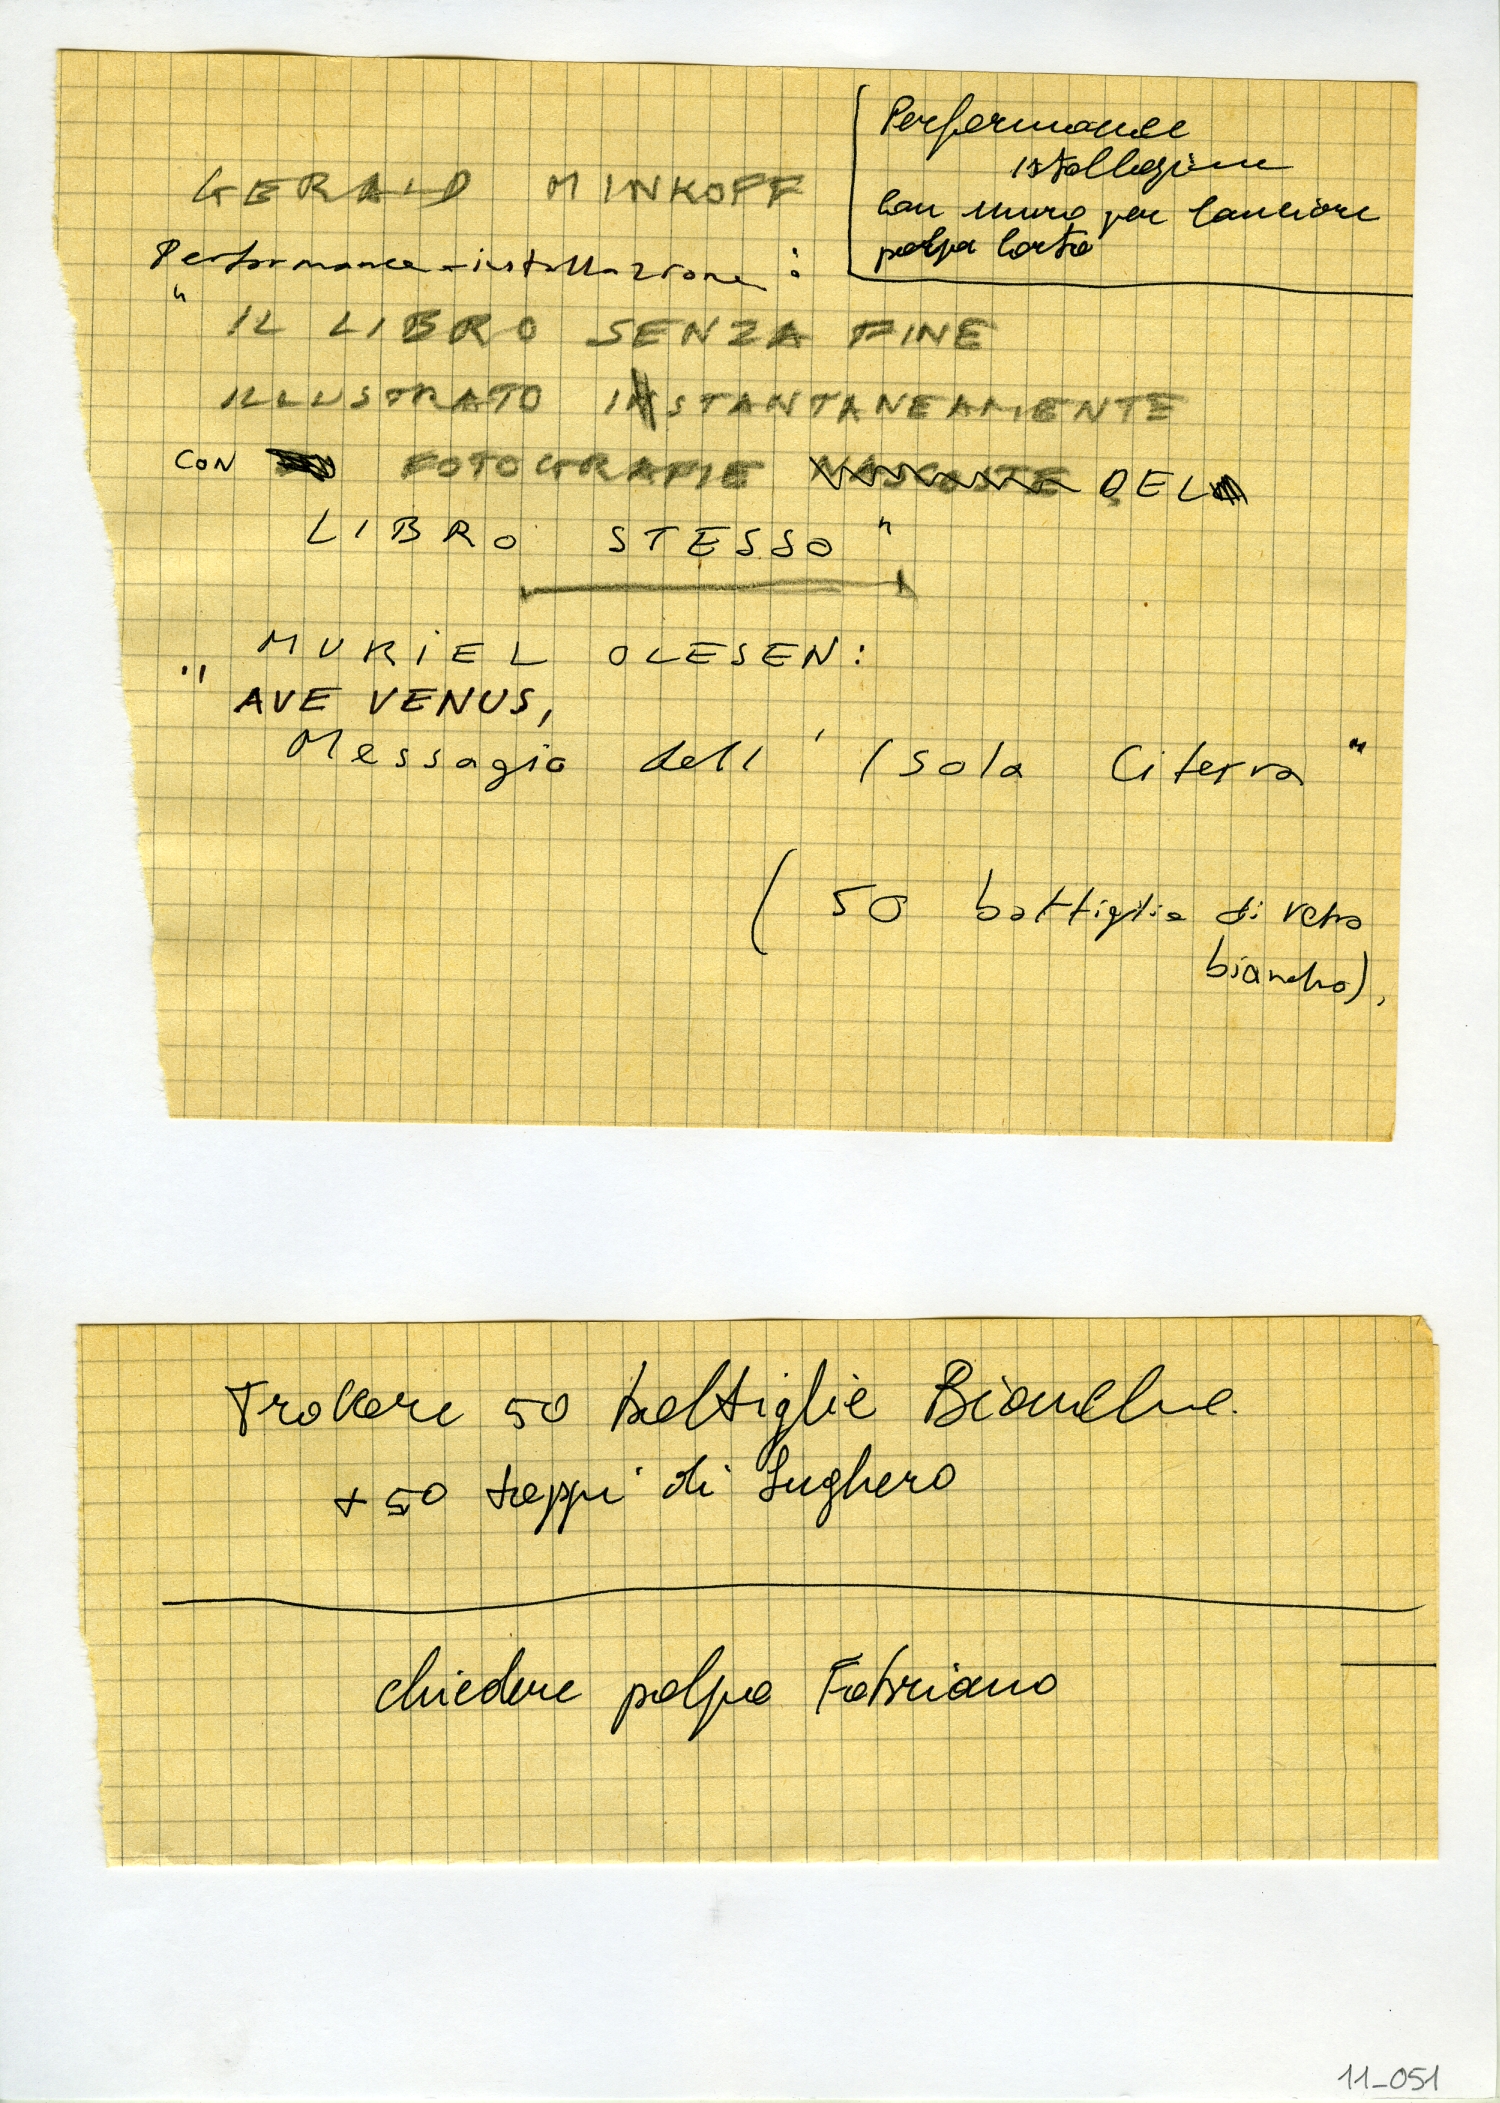 Performance
istallazione
con muro per lanciare
polpa carta
GERALD MINKOFF
Performance-installazione :
" IL LIBRO SENZA FINE
ILLUSTRATO ISTANTANEAMENTE
CON FOTOGRAFIE NASCOSTE DEL
LIBRO STESSO "
MURIEL OLESEN :
" AVE VENUS,
Messagio dell' Isola Citerra "
( 50 bottiglie di vetro
biancho).
Trovare 50 bottiglie Bianche
+ 50 tappi di sughero
chiedere polpa Fabriano
11_051